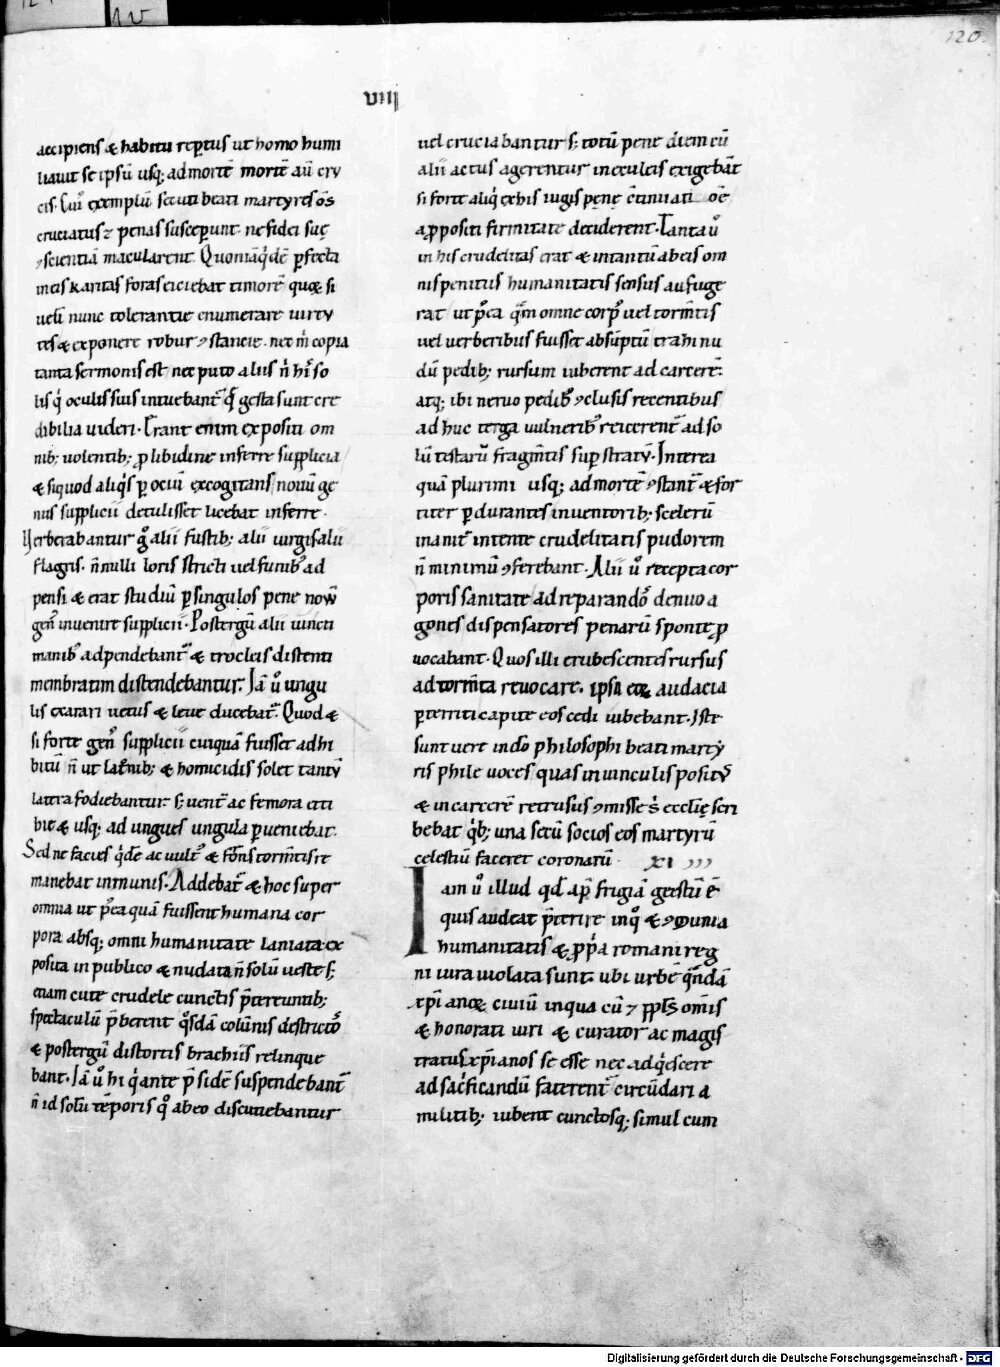 120
VIIII
accipiens & habitu rep̱tus ut homo humi
liauit se ipsū usq; ad mortē mortē aū cru
cis. Cui᷒ exemplū secuti beati martyres oms̄
cruciatus & penas suscep̱unt. ne fidei sue
ꝯscientiā macularent. Quoniā q'dē p̱fecta
in eis karitas foras eiciebat timorē quę si
uelī nunc tolerantie enumerare uirtu
tes & exponere robur ꝯstancie. nec m̓ copia
tanta sermonis est nec puto aliis n̄ his̓ so
lis q' oculis suis intuebant᷑ q̄ gesta sunt cre
dibilia uideri. Erant enim expositi om
nib; uolentib; p̱ libidine inferre supplicia
& siquod aliq's p̱ ociū excogitans nouū ge
nus supplicii detulisset licebat inferre.
Verberabantur g̊ alii fustib; alii uirgis alii
flagris. n̄nulli loris stricti uel funib᷒ ad
pensi & erat studiū p̱ singulos pene nouū
gen᷒ inuenire supplicii. Postergū alii uincti
manib᷒ adpendebant᷑ & trocleis distenti
membratim distendebantur. Iā ů ungu
lis exarari uetus & leue ducebat᷑. Quod &
si forte gen᷒ supplicii cuiquā fuisset adhi
bitū n̄ ut lat̓nib; & homicidis solet tantū
latera fodiebantur s; uent̄ ac femora etti
bie & usq; ad ungues ungula p̱ueniebat.
Sed ne facies q'dē ac uult᷒ & frons tormtis̄ re
manebat inmunis. Addebat᷑ & hoc super
omnia ut p᷒ea quā fuissent humana cor
pora absq; omni humanitate laniata ex
posita in publico & nudata n̄ solū ueste s;
etiam cute crudele cunctis p̄tereuntib;
spectaculū p̄berent q'sdā colūnis destricto᷒
& postergū distortis brachiis relinque
bant. Iā ů hi q' ante p̄sidē suspendebant᷑
n̄ id solū tēporis q̊ ab eo discutiebantur
uel cruciabantur s; totū pene diem cū
alii actus agerentur in eculeis exigebāt
si forte aliq' ex his iugis penę ctinuati oe᷑
a p̱positi firmitate deciderent. Tanta ů
in his crudelitas erat & in tantū ab eis om
nis penitus humanitatis sensus aufuge
rat ut p᷒ea q̄m omne corp᷒ uel tormtis̄
uel uerberibus fuisset absūptū trahi nu
dū pedib; rursum iuberent ad carcerē
atq; ibi neruo pedib᷒ ꝯclusis recentibus
adhuc terga uulnerib᷒ reicerent᷑ ad so
lū testarū fragmtis̄ sup̱ stratū. Interea
quā plurimi usq; ad mortē ꝯstant᷑ & for
titer p̱durantes inuentorib; scelerū
inanit᷑ intente crudelitatis pudorem
n̄ minimū ꝯferebant. Alii ů recepta cor
poris sanitate ad reparando᷒ denuo a
gones dispensatores penarū sponte p̱
uocabant. Quos illi erubescentes rursus
ad tormta᷑ reuocare. ipsa eoꝝ audacia
p̱territi capite eos cedi iubebant. Iste
sunt uere in dō philosophi beati marty
ris phile uoces quas in uinculis posit᷒
& in carcerē retrusus ꝯmisse s̓ ecclię scri
bebat q'b; una secū socios eos martyrū
celestiū faceret coronarū. XI
Iam ů illud qd̄ ap̄ frigiā gestū ē
quis audeat p̄terire in q̊ & ꝯmunia
humanitatis & pp̓a romani reg
ni iura uiolata sunt. ubi urbē q̄ndā
xp̄ianoꝝ ciuiū in qua cū & pp̱ls om̄is
& honorati uiri & curator ac magis
tratus xp̄ianos se esse nec adq'escere
ad sac̓ficandū faterent᷑ circūdari a
militib; iubent cunctosq; simul cum
Digitalisierung gefördert durch die Deutsche Forschungsgemeinschaft - DFG